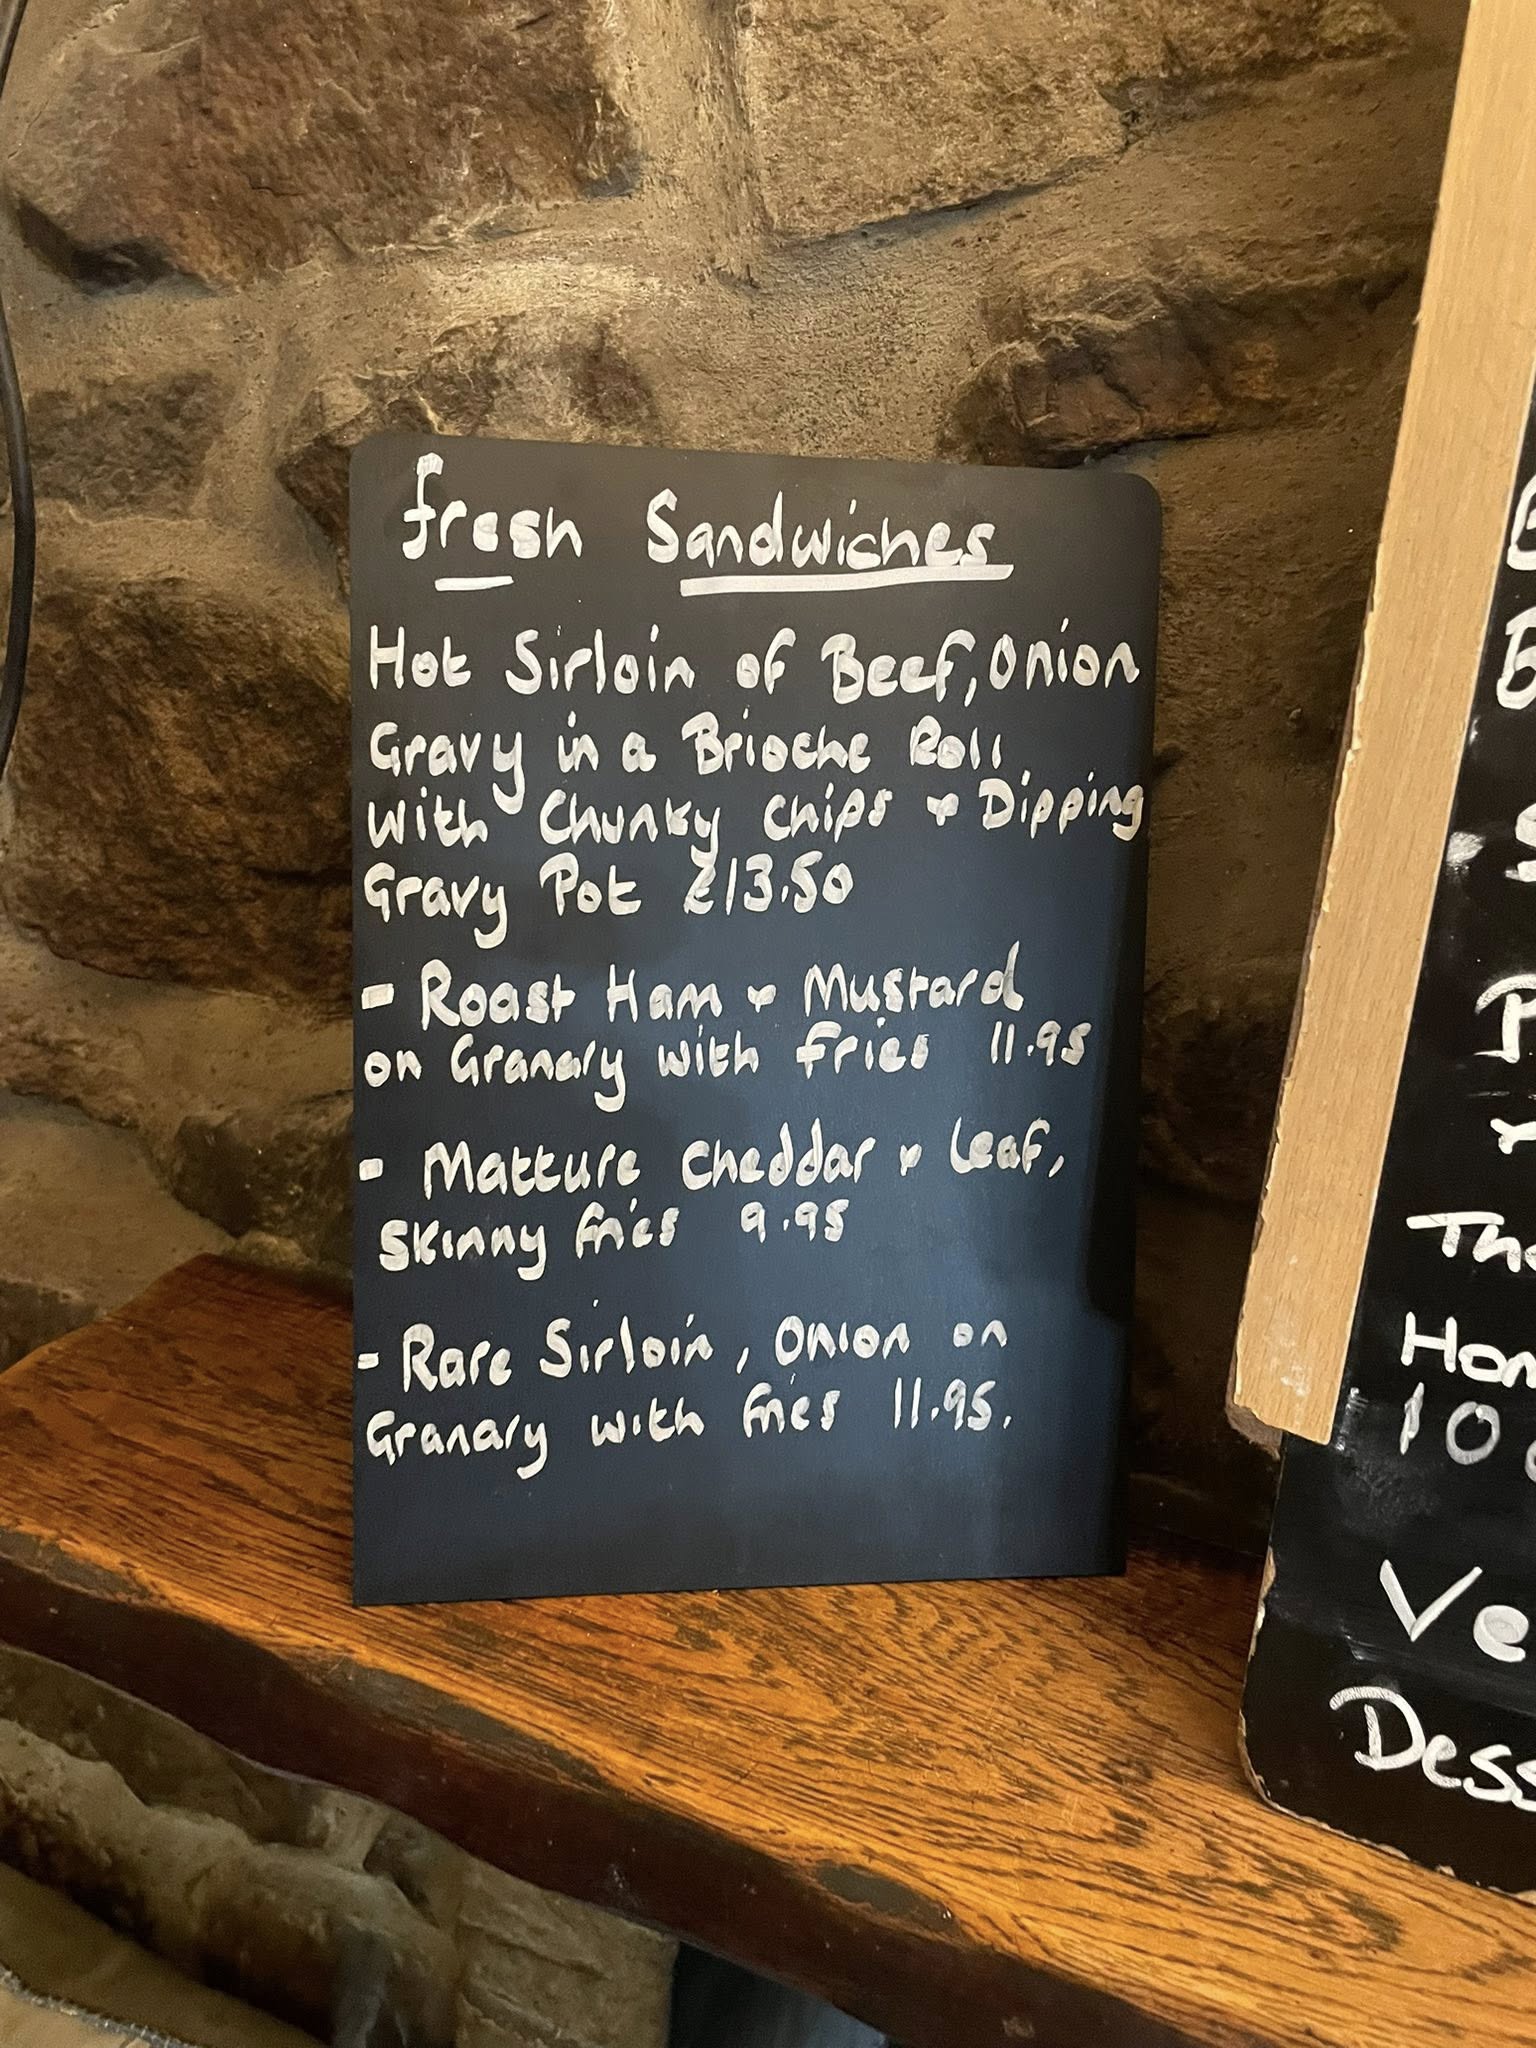 fresh Sandwiches
Hot Sirloin of Beef, Onion
Gravy in a Brioche Roll
with Chunky Chips & Dipping
Gravy Pot £13.50
- Roast Ham & Mustard
on Granary with fries 11.95
- Matture Cheddar & Leaf,
Skinny fries 9.95
- Rare Sirloin, Onion on
Granary with fries 11.95.